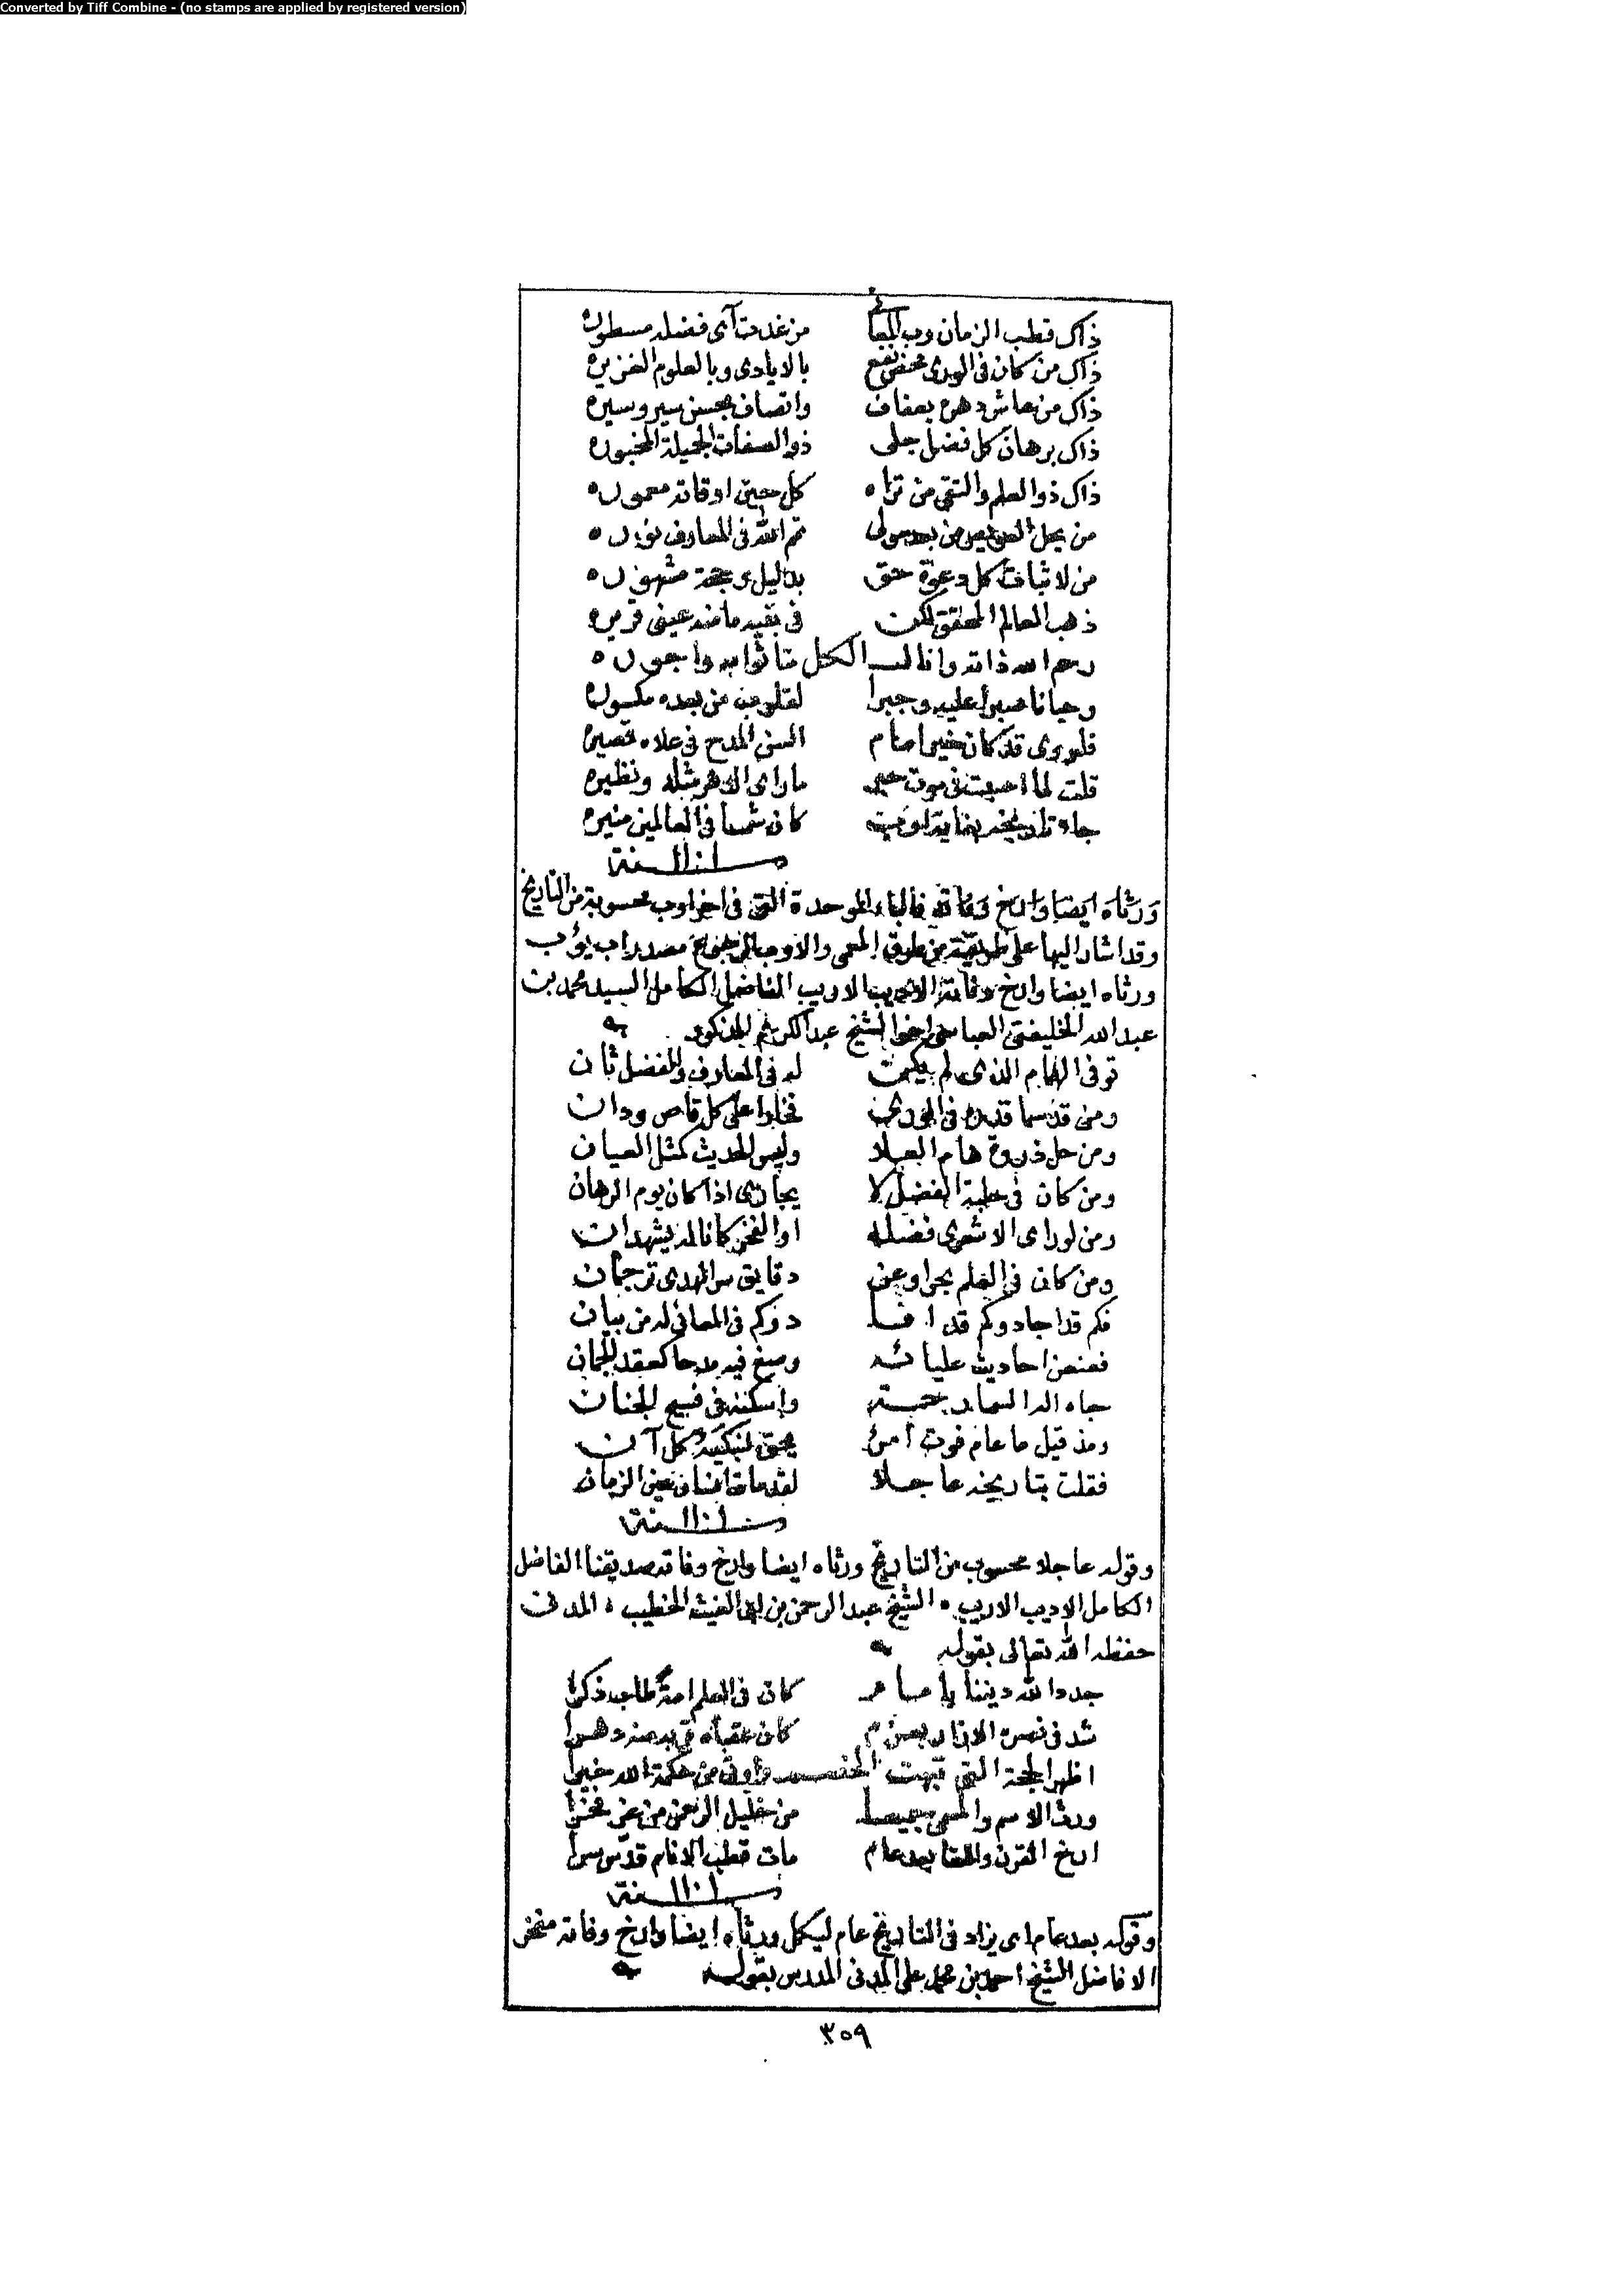 Converted by Tiff Combine - (no stamps are applied by registered version)
ذاك قطب الزمان ورب من غدت آى فضله مسطوره
ذاك من كان فى الورى محض نفع بالايادى وبالعلوم الغزيره
ذاك من عاش دهره بعفاف واتصاف بحسن سير وسيره
ذاك برهان كل فضل جلى ذو الصفات الجميلة المخبوره
ذاك ذو العلم والتقى من تراه كل حين اوقاته معموره
من بعد تم الله فى المعارف نوره
من لاثبات كل دعوة حق بدليل وحجة مشهوره
ذهب العالم المحقق لكن فى بقيه ما منه عينى قريره
رحم الله ذاته وانا الكل منا ثوابه واجوره
وحبانا صبرا عليه وجبرا لقلوب من بعده مكسوره
قد كان خير امام السن المدح فى علاه قصيره
قلت لما اصبت فى موت حبر ما راى الدهر مثله ونظيره
جاء كان شمسا فى العالمين منيره
سنة
ورثاه ايضا وارخ وفاته فالباء الموحدة التى فى اخر اوب محسوبة من التاريخ
وقد اشار اليها على طريقة من طرق المعمى والاوب الرجوع مصدر اب يؤب
ورثاه ايضا وارخ وفاته الاديب الاريب الفاضل الكامل السيد محمد بن
عبد الله الخليفتى العباسى اخو الشيخ عبد الكريم المذكور
توفى الهمام الذى لم يكن له فى المعارف والفضل ثان
ومن قد سما قدره فى الورى فخارا على كل قاص ودان
ومن حل ذروة هام العلا وليس الحديث كمثل العيان
ومن كان فى حلبة الفضل لا يجارى اذا كان يوم الرهان
ومن لو راى الاشعرى فضله او الفخر كانا له يشهدان
ومن كان فى العلم بحرا وعن دقايق سر الهدى ترجمان
فكم قد اجاد وكم قد افا د وكم فى المعانى له من بيان
فعنعن احاديث عليائه وصغ فيه مدحا كعقد الجمان
حباه اله السما برحمته واسكنه فى فسيح الجنان
ومذ قيل ما عام فوت امرئ يحق لنبكيه كل آن
فقلت بتاريخه عاجلا لقد مات انسان عين الزمان
سنة
وقوله عاجلا محسوب من التاريخ ورثاه ايضا وارخ وفاته صديقنا الفاضل
الكامل الاديب الاريب الشيخ عبد الرحمن بن ابى الغيث الخطيب المدنى
حفظه الله تعالى بقوله
جدد الله ديننا بامام كان فى العلم امة طاب ذكرا
شد فى نصرة الاله بعزم كان عقباه
اظهر الحجة التى بهت الخصم واوتى من حكمة الله خيرا
ورث الاسم والمسمى جميعا من خليل الرحمن من عز فخرا
ارخ القرن واللقا بعد عام مات قطب الانام قدس سرا
سنة
وقوله بعد عام اى يزاد فى التاريخ عام ليكمل ورثاه ايضا وارخ وفاته مفخر
الافاضل الشيخ احمد بن محمد على المدنى المدرس بقوله
٣٥٩